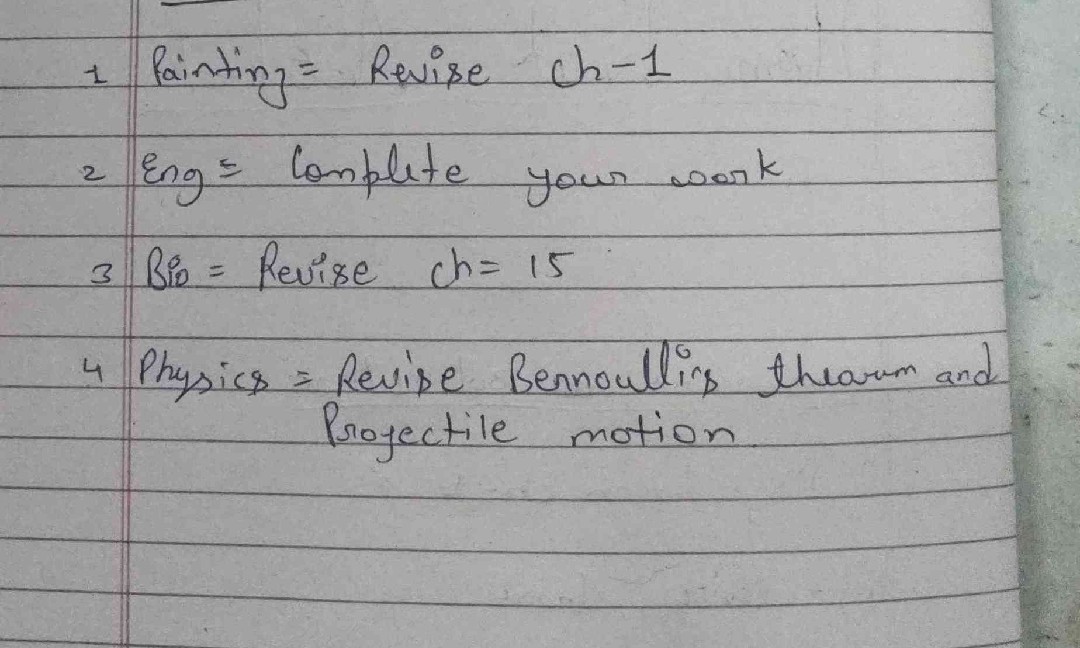 1 Painting = Revise ch-1
2 Eng = Complete your work
3 Bio = Revise ch = 15
4 Physics = Revise Bernoullis thearum and
Projectile motion